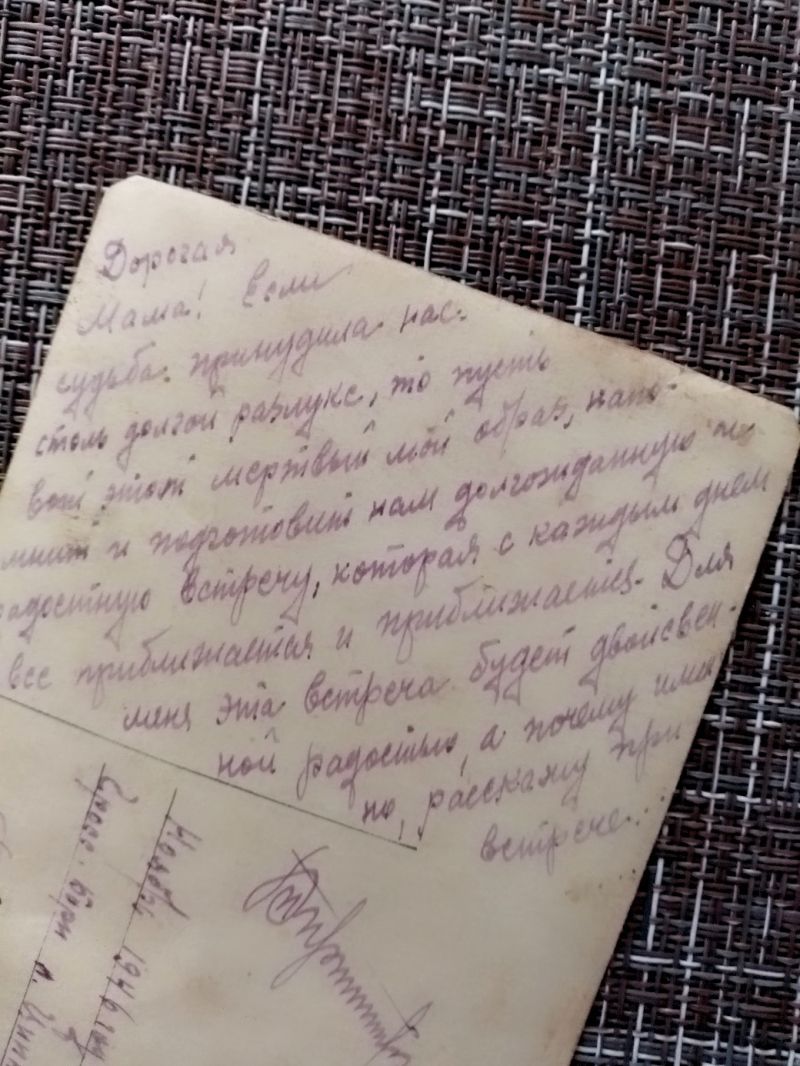 Дорогая
Мама! Если
судьба принудила нас
столь долгой разлуке, то пусть
вот этот мертвый мой образ, напо-
мнит и подготовит нам долгожданную и
радостную встречу, которая с каждым днем
все приближается и приближается. Для
меня эта встреча будет двойствен-
ной радостью, а почему имен
но, расскажу при
встрече...
Ноябрь 1946